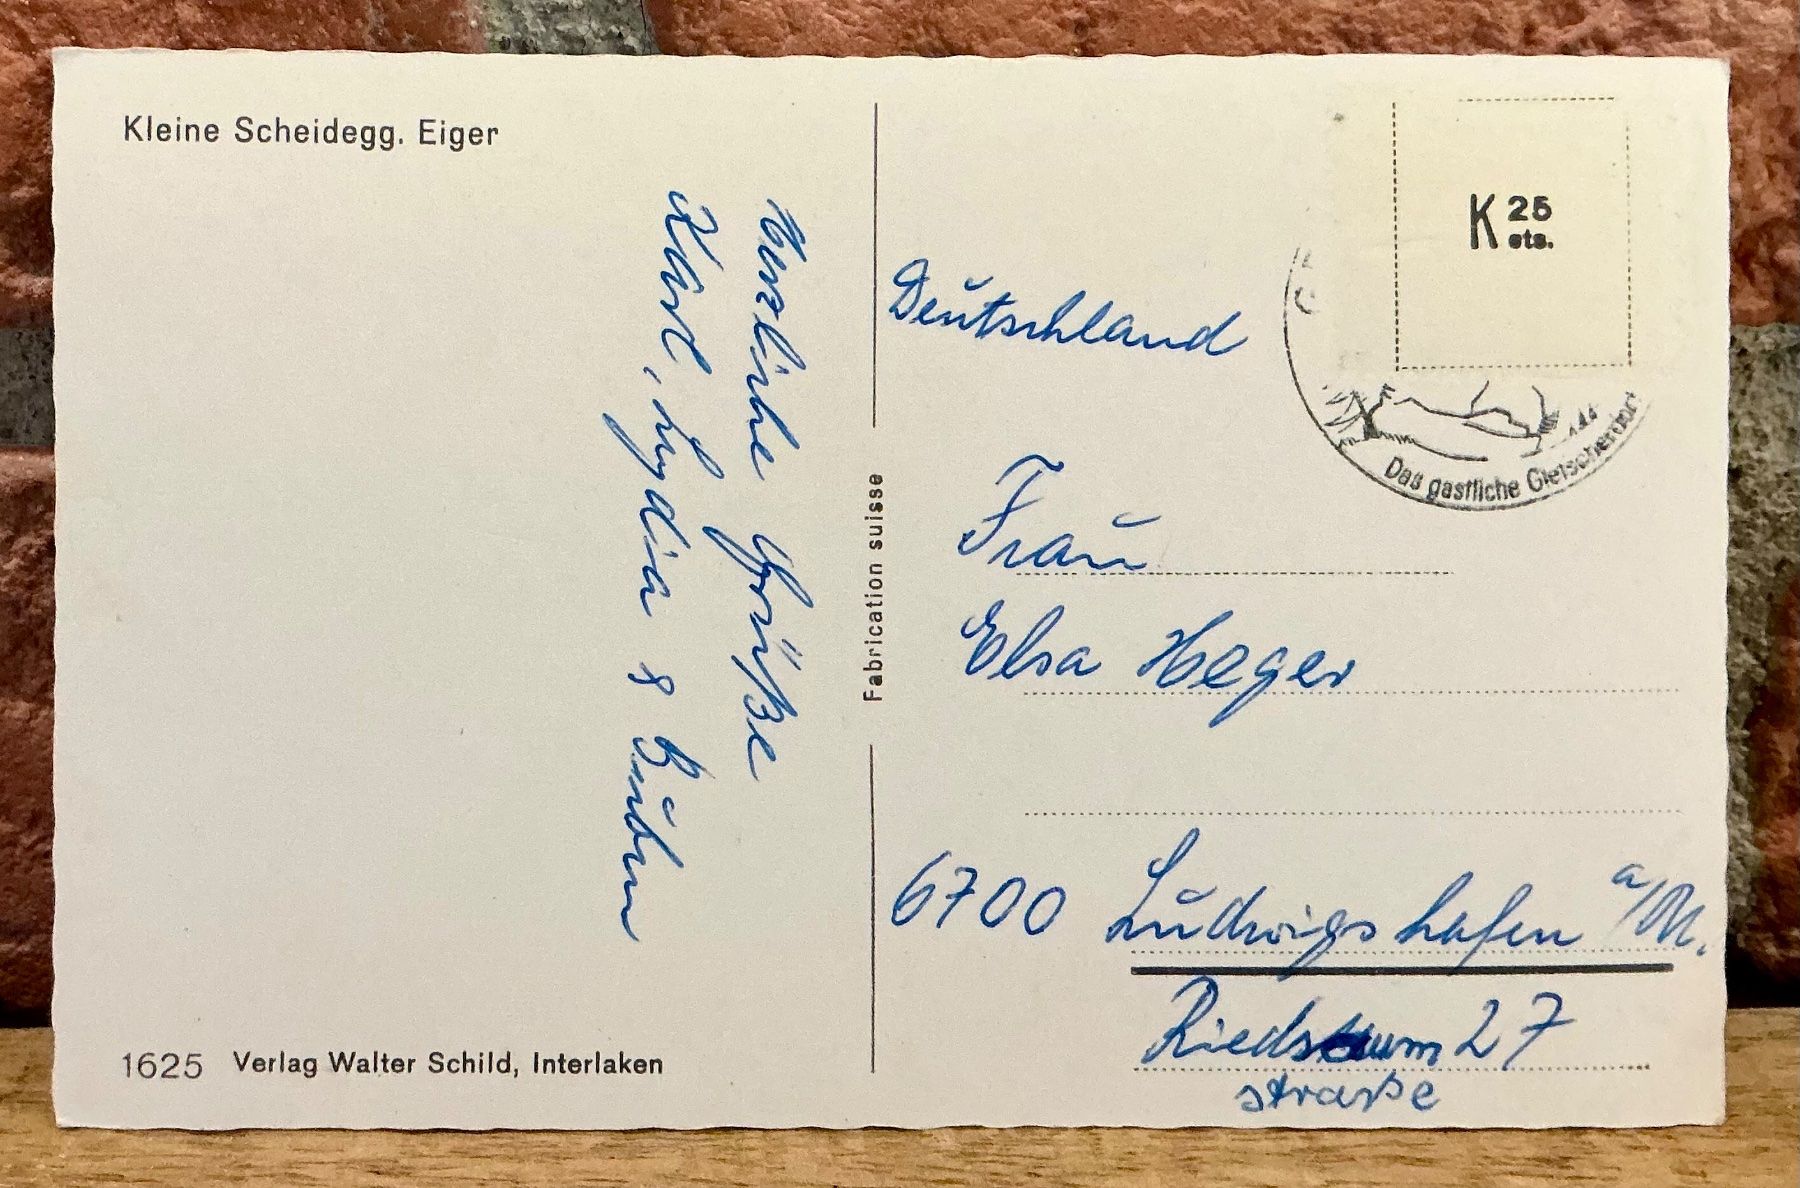 Kleine Scheidegg. Eiger
Herzliche Grüße
Karl, Lydia &
1625 Verlag Walter Schild, Interlaken
Fabrication suisse
K 25 cts.
Das gastliche Gletscherdorf
Deutschland
Frau
Elsa Heger
6700 Ludwigshafen a/
Riedsaum 27
straße